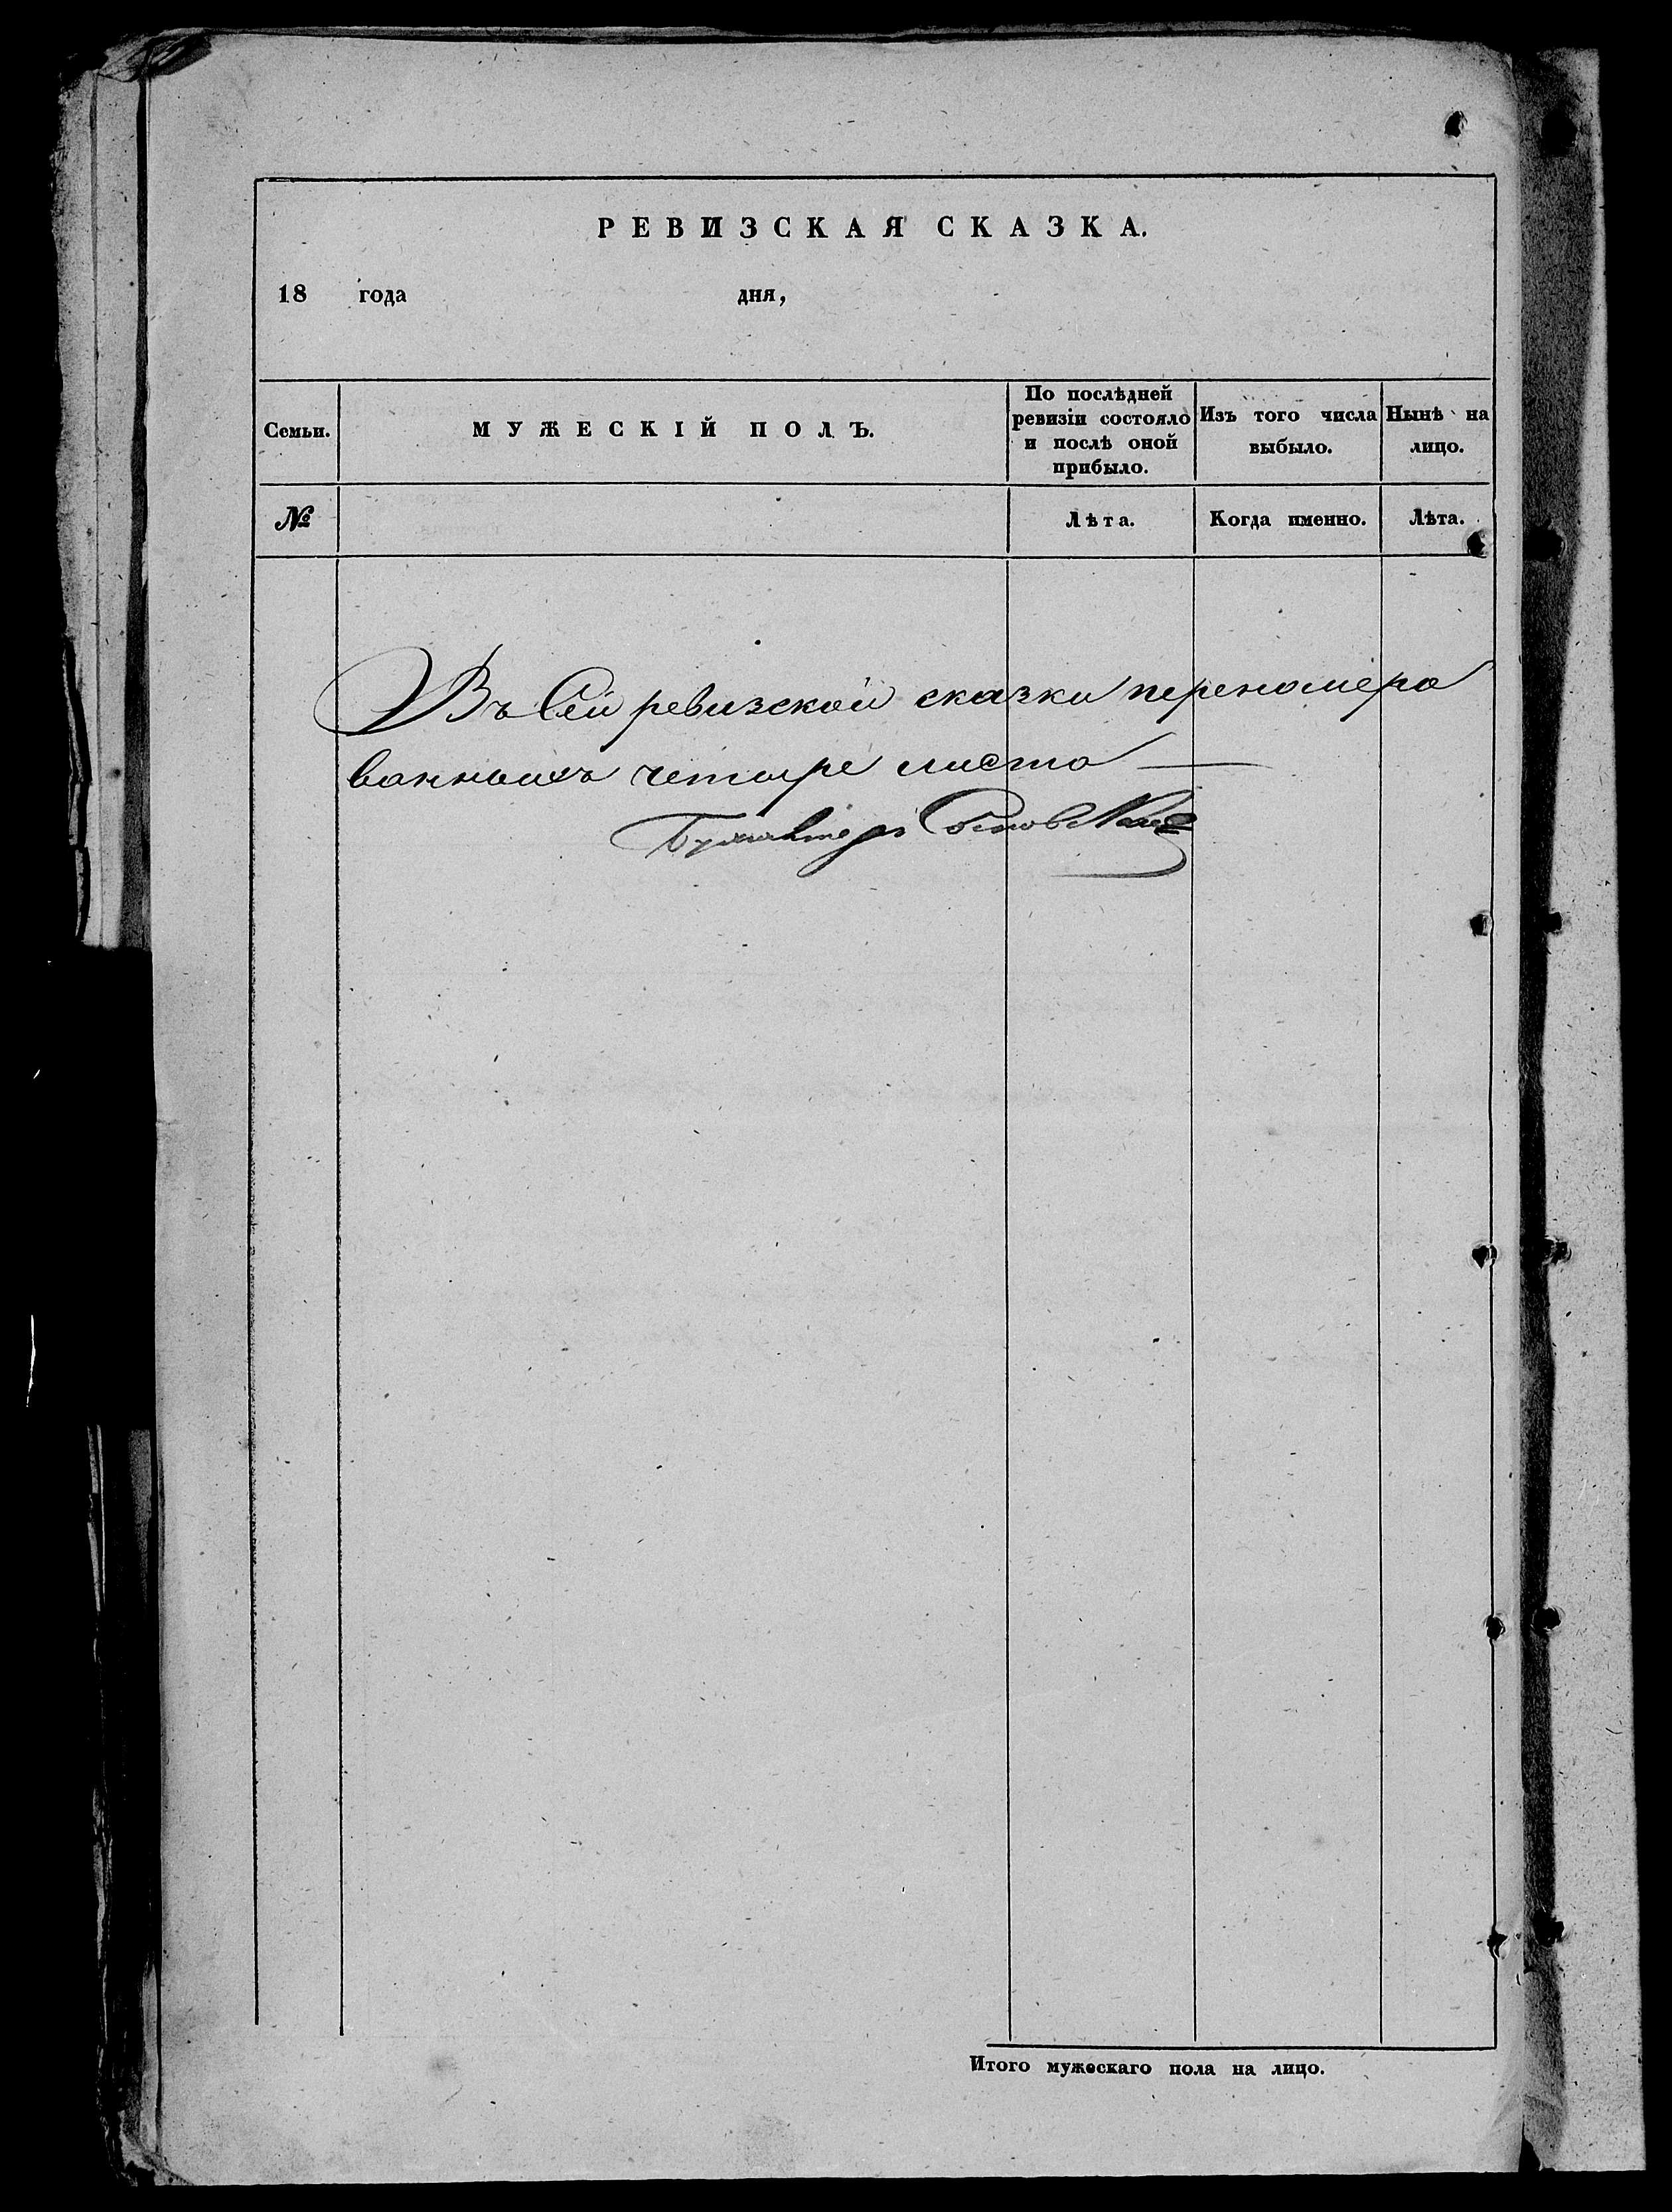 РЕВИЗСКАЯ СКАЗКА.
18 года дня,
Семьи.
МУЖЕСКІЙ ПОЛЪ.
По послѣдней
ревизіи состояло
и послѣ оной
прибыло.
Изъ того числа
выбыло.
Нынѣ на
лицо.
№
Лѣта.
Когда именно.
Лѣта.
Въ Сей ревизской сказки перенамеро
ванныхъ четыре листа
Бухгалтеръ
Итого мужескаго пола на лицо.